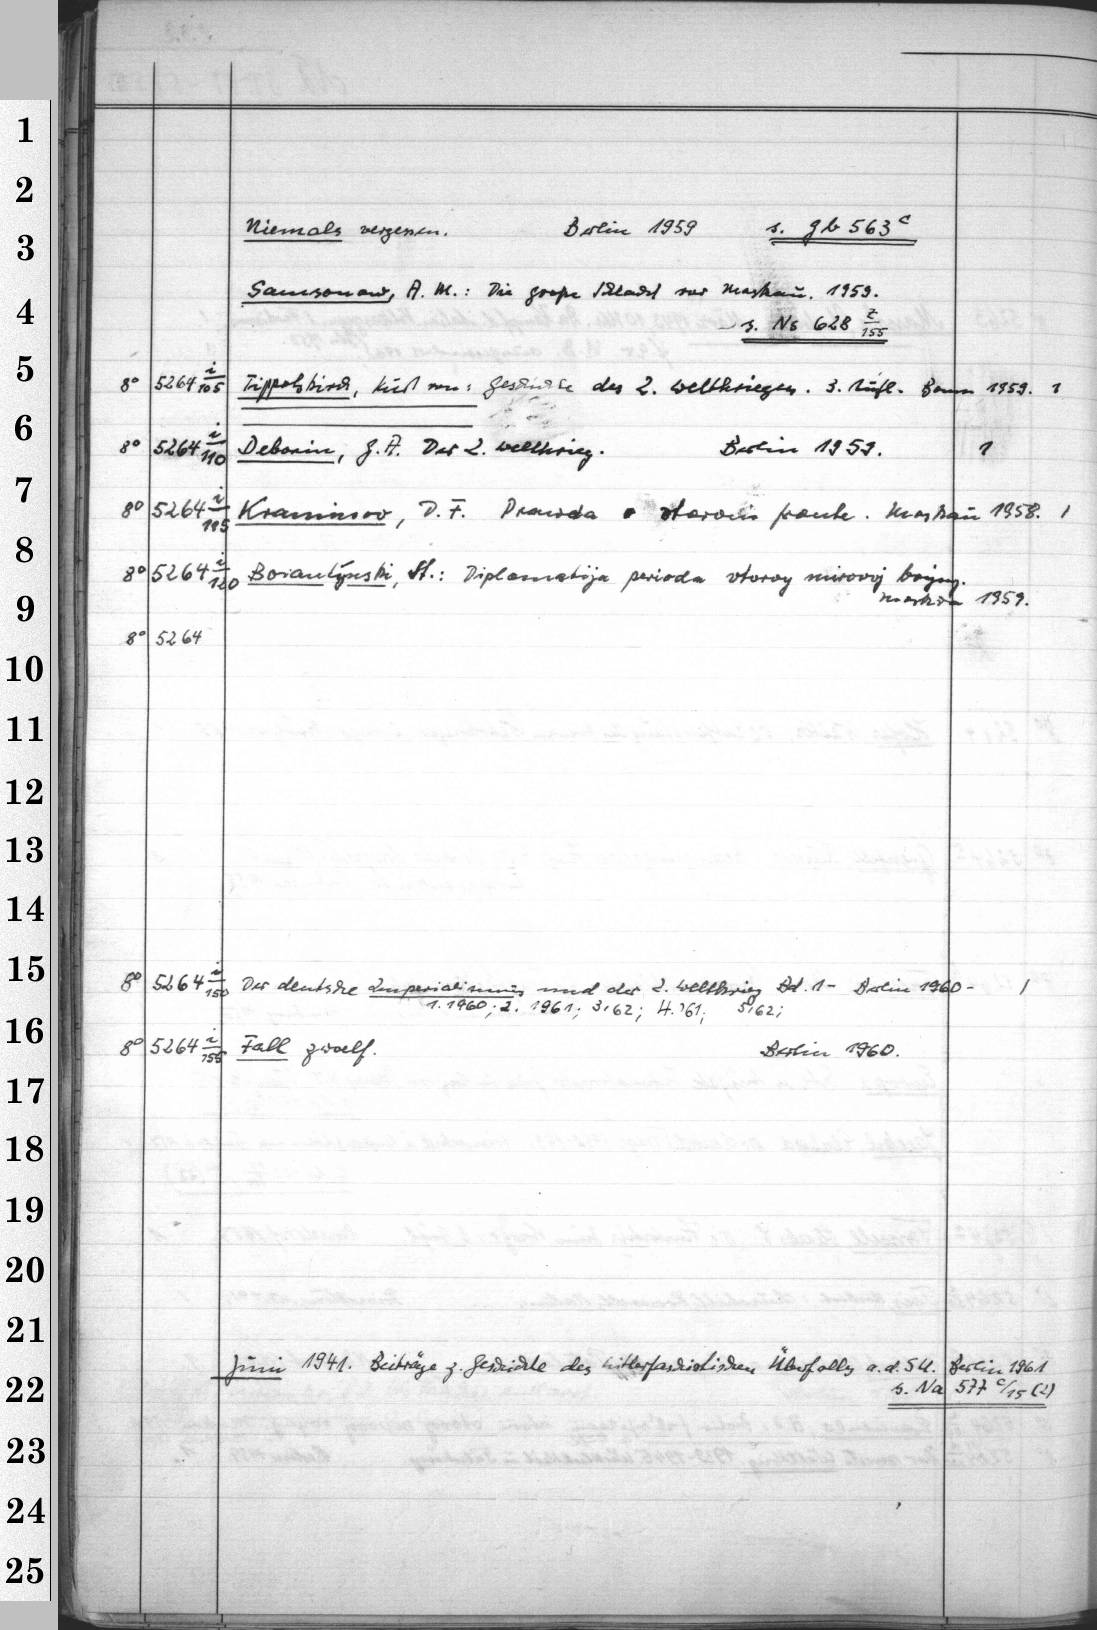 1
2
Niemals vergessen. Berlin 1959 s. gb 563 c
3
Samsonow, A. M.: Die große Schlacht vor Moskau. 1959.
4
s. Ns 628 z/155
5
8° 5264 i/105 Tippelskirch, Kurt von: Geschichte des 2. Weltkrieges. 3. Aufl. Bonn 1959. 1
6
8° 5264 i/110 Deborin, G. A. Der 2. Weltkrieg. Berlin 1959. 1
7
8° 5264 i/115 Kraminov, D. F. Prawda o vtorom fronte. Moskau 1958. 1
8
8° 5264 i/120 St.: Diplomatija perioda vtoroy mirovoj vojny.
9
Moskva 1959.
8° 5264
10
11
12
13
14
15
8° 5264 i/150 Der deutsche Imperialismus und der 2. Weltkrieg Bd. 1- Berlin 1960- 1
1. 1960; 2. 1961; 3.'62; 4.'61; 5.'62;
16
8° 5264 i/155 Fall zwoelf. Berlin 1960.
17
18
19
20
21
Juni 1941. Beiträge z. Geschichte des hitlerfaschistischen Überfalls a. d. SU. Berlin 1961
22
s. Na 577 c/15 (2)
23
24
25